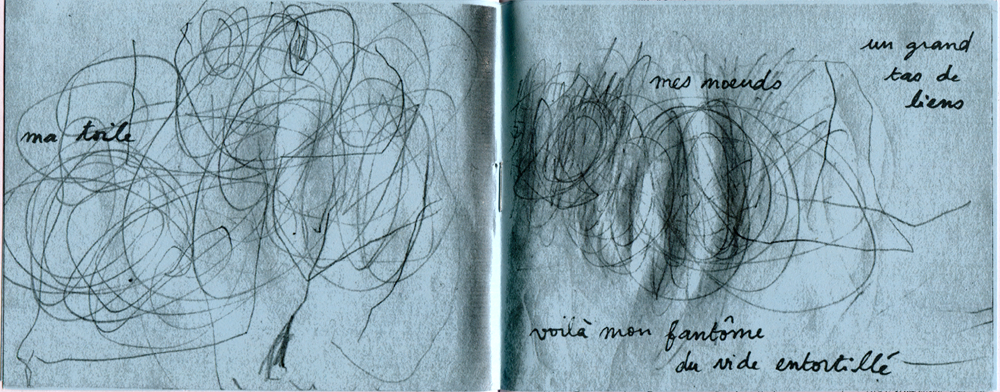 ma toile
un grand
tas de
liens
mes noeuds
voilà mon fantôme
du vide entortillé